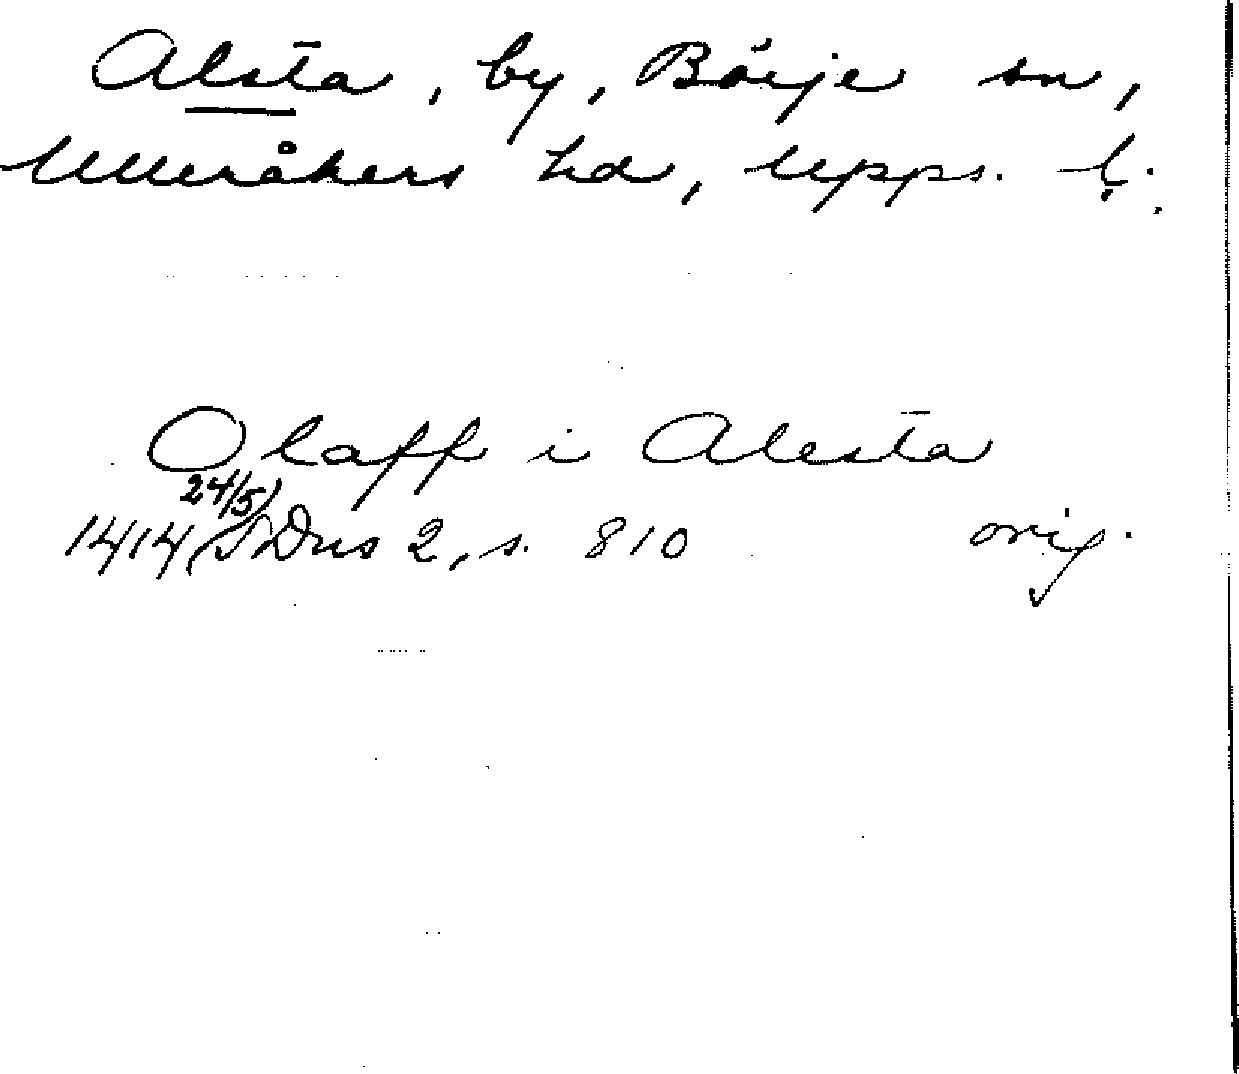 Alsta, by, Börje sn,
Ulleråkers hd, Upps. l.
Olaff i Alesta
24/5
1414 (SDns 2, s. 810 orig.